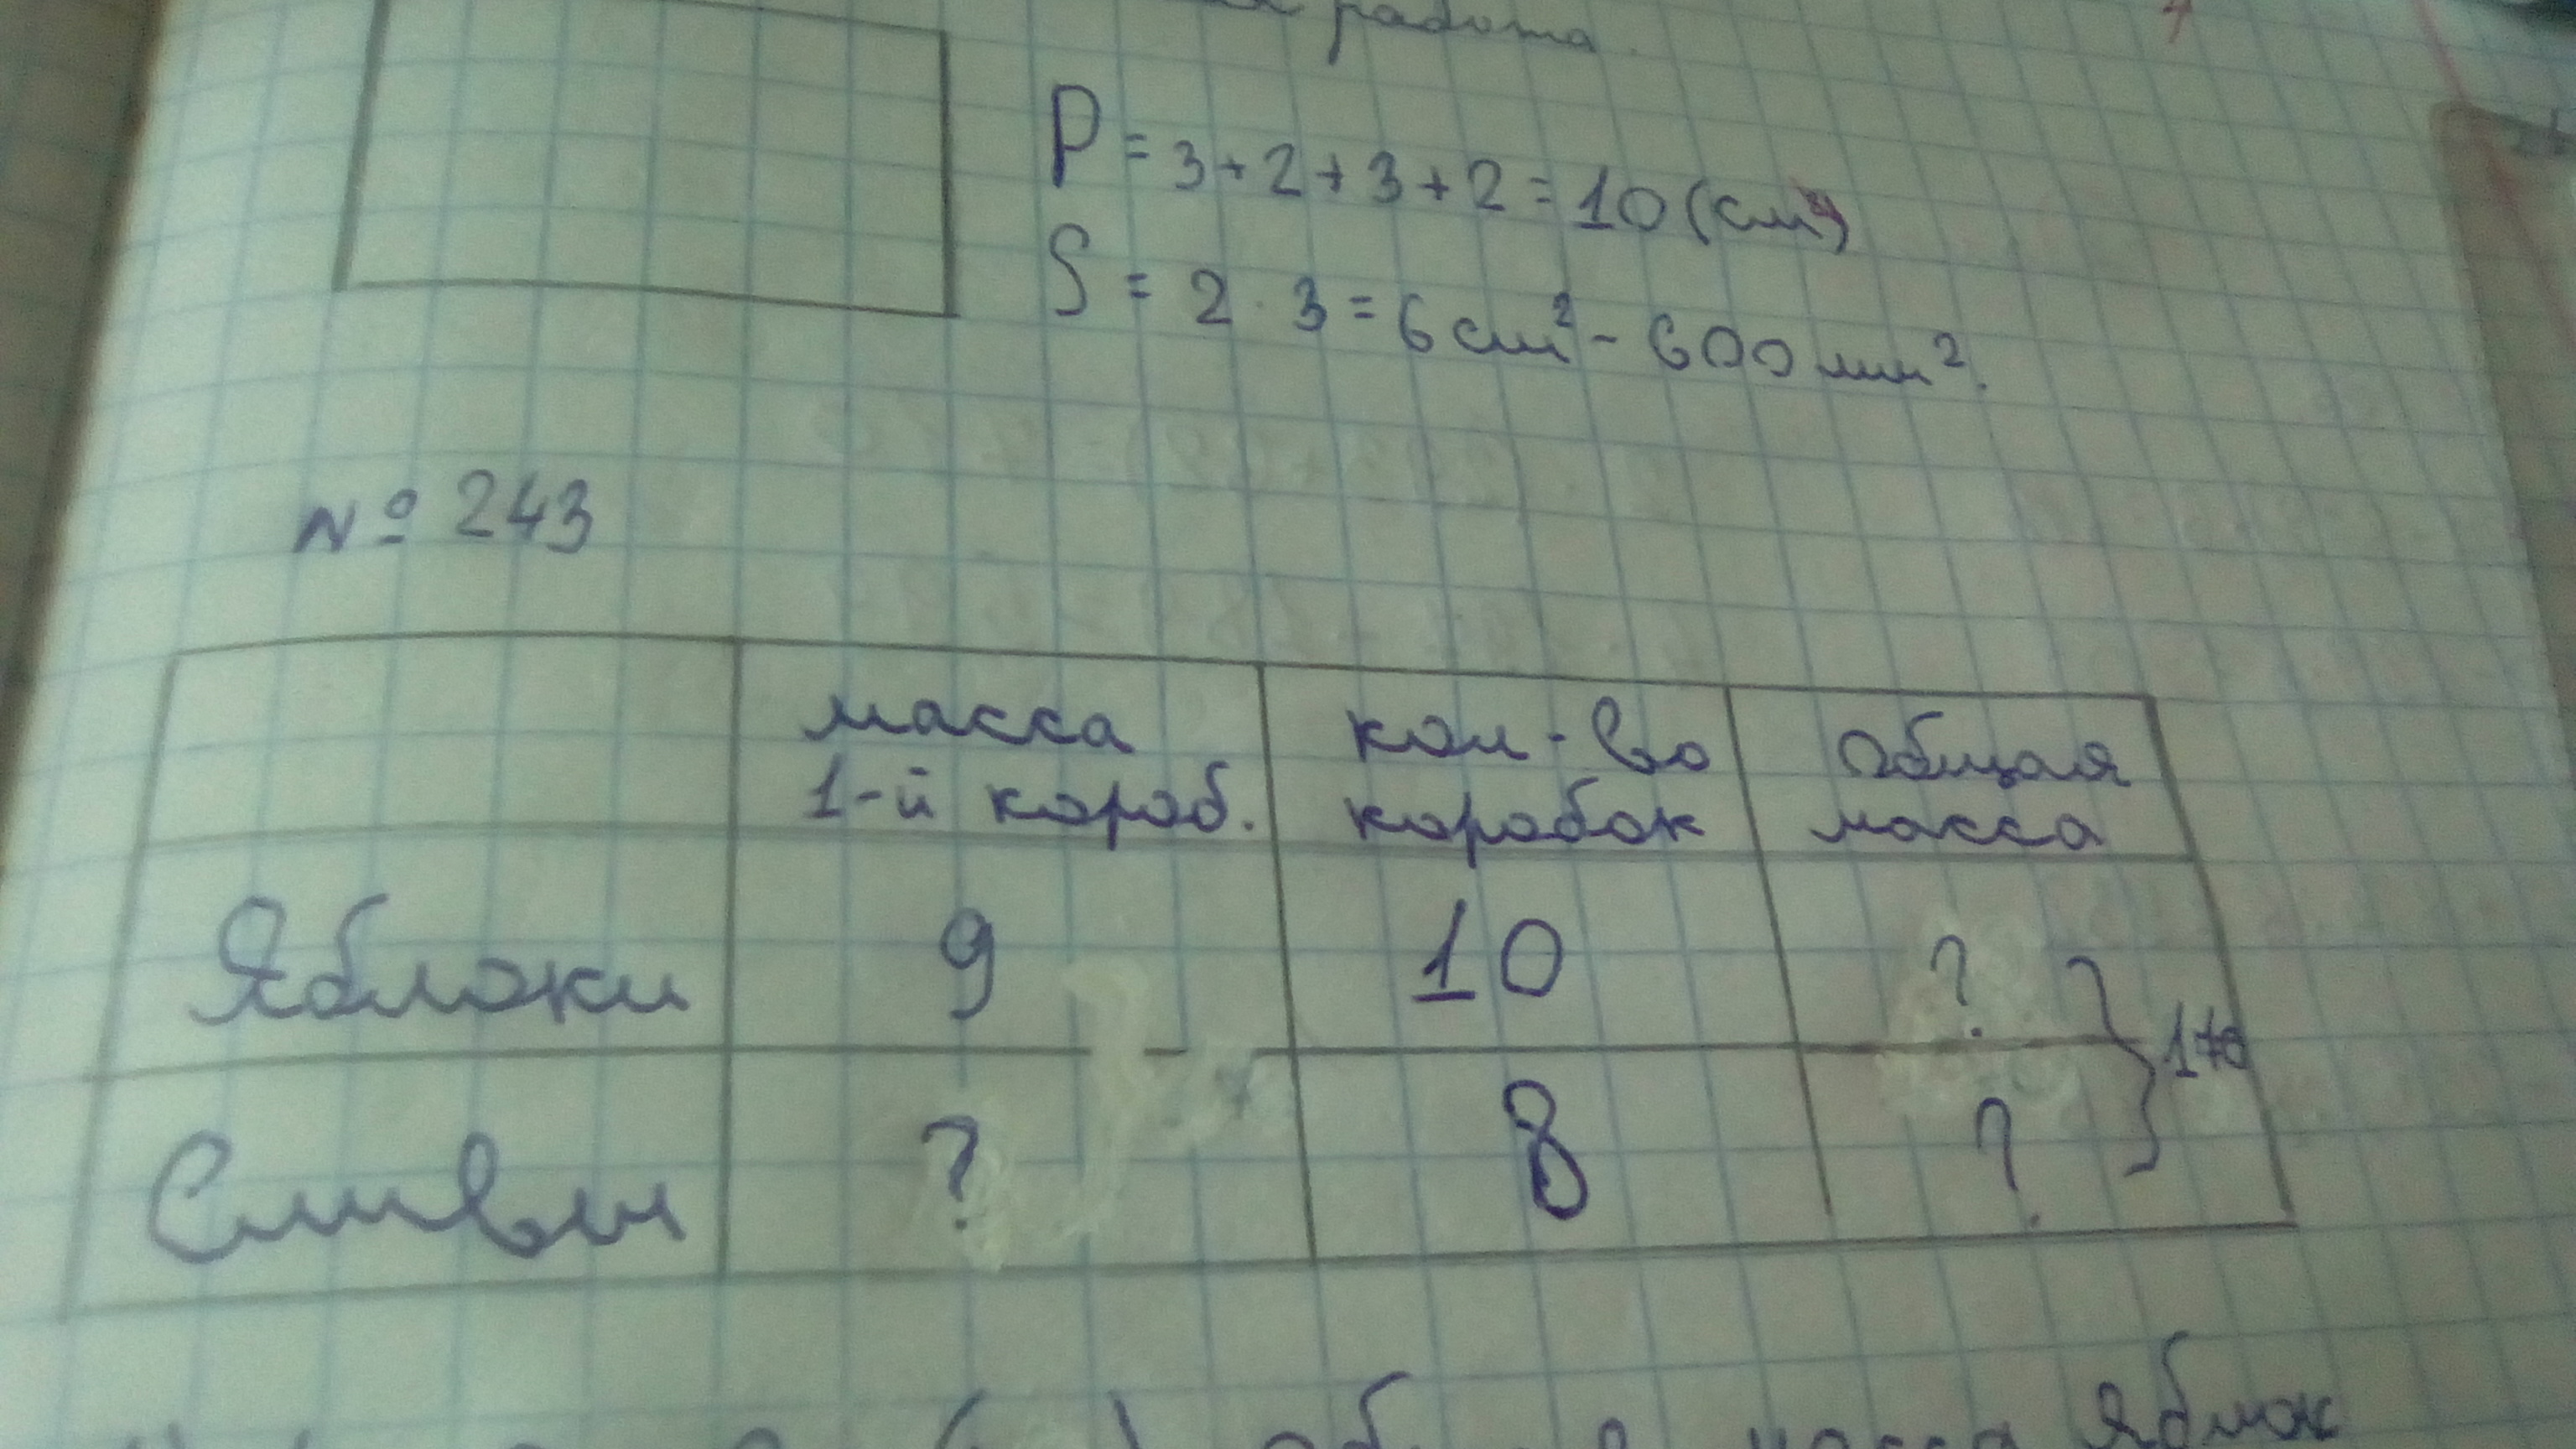 работа
P = 3 + 2 + 3 + 2 = 10 (см)
S = 2 · 3 = 6 см² - 600 мм².
№ 243
масса 1-й короб. кол-во коробок Общая масса
Яблоки 9 10 ?
Сливы ? 8 ?
масса яблок